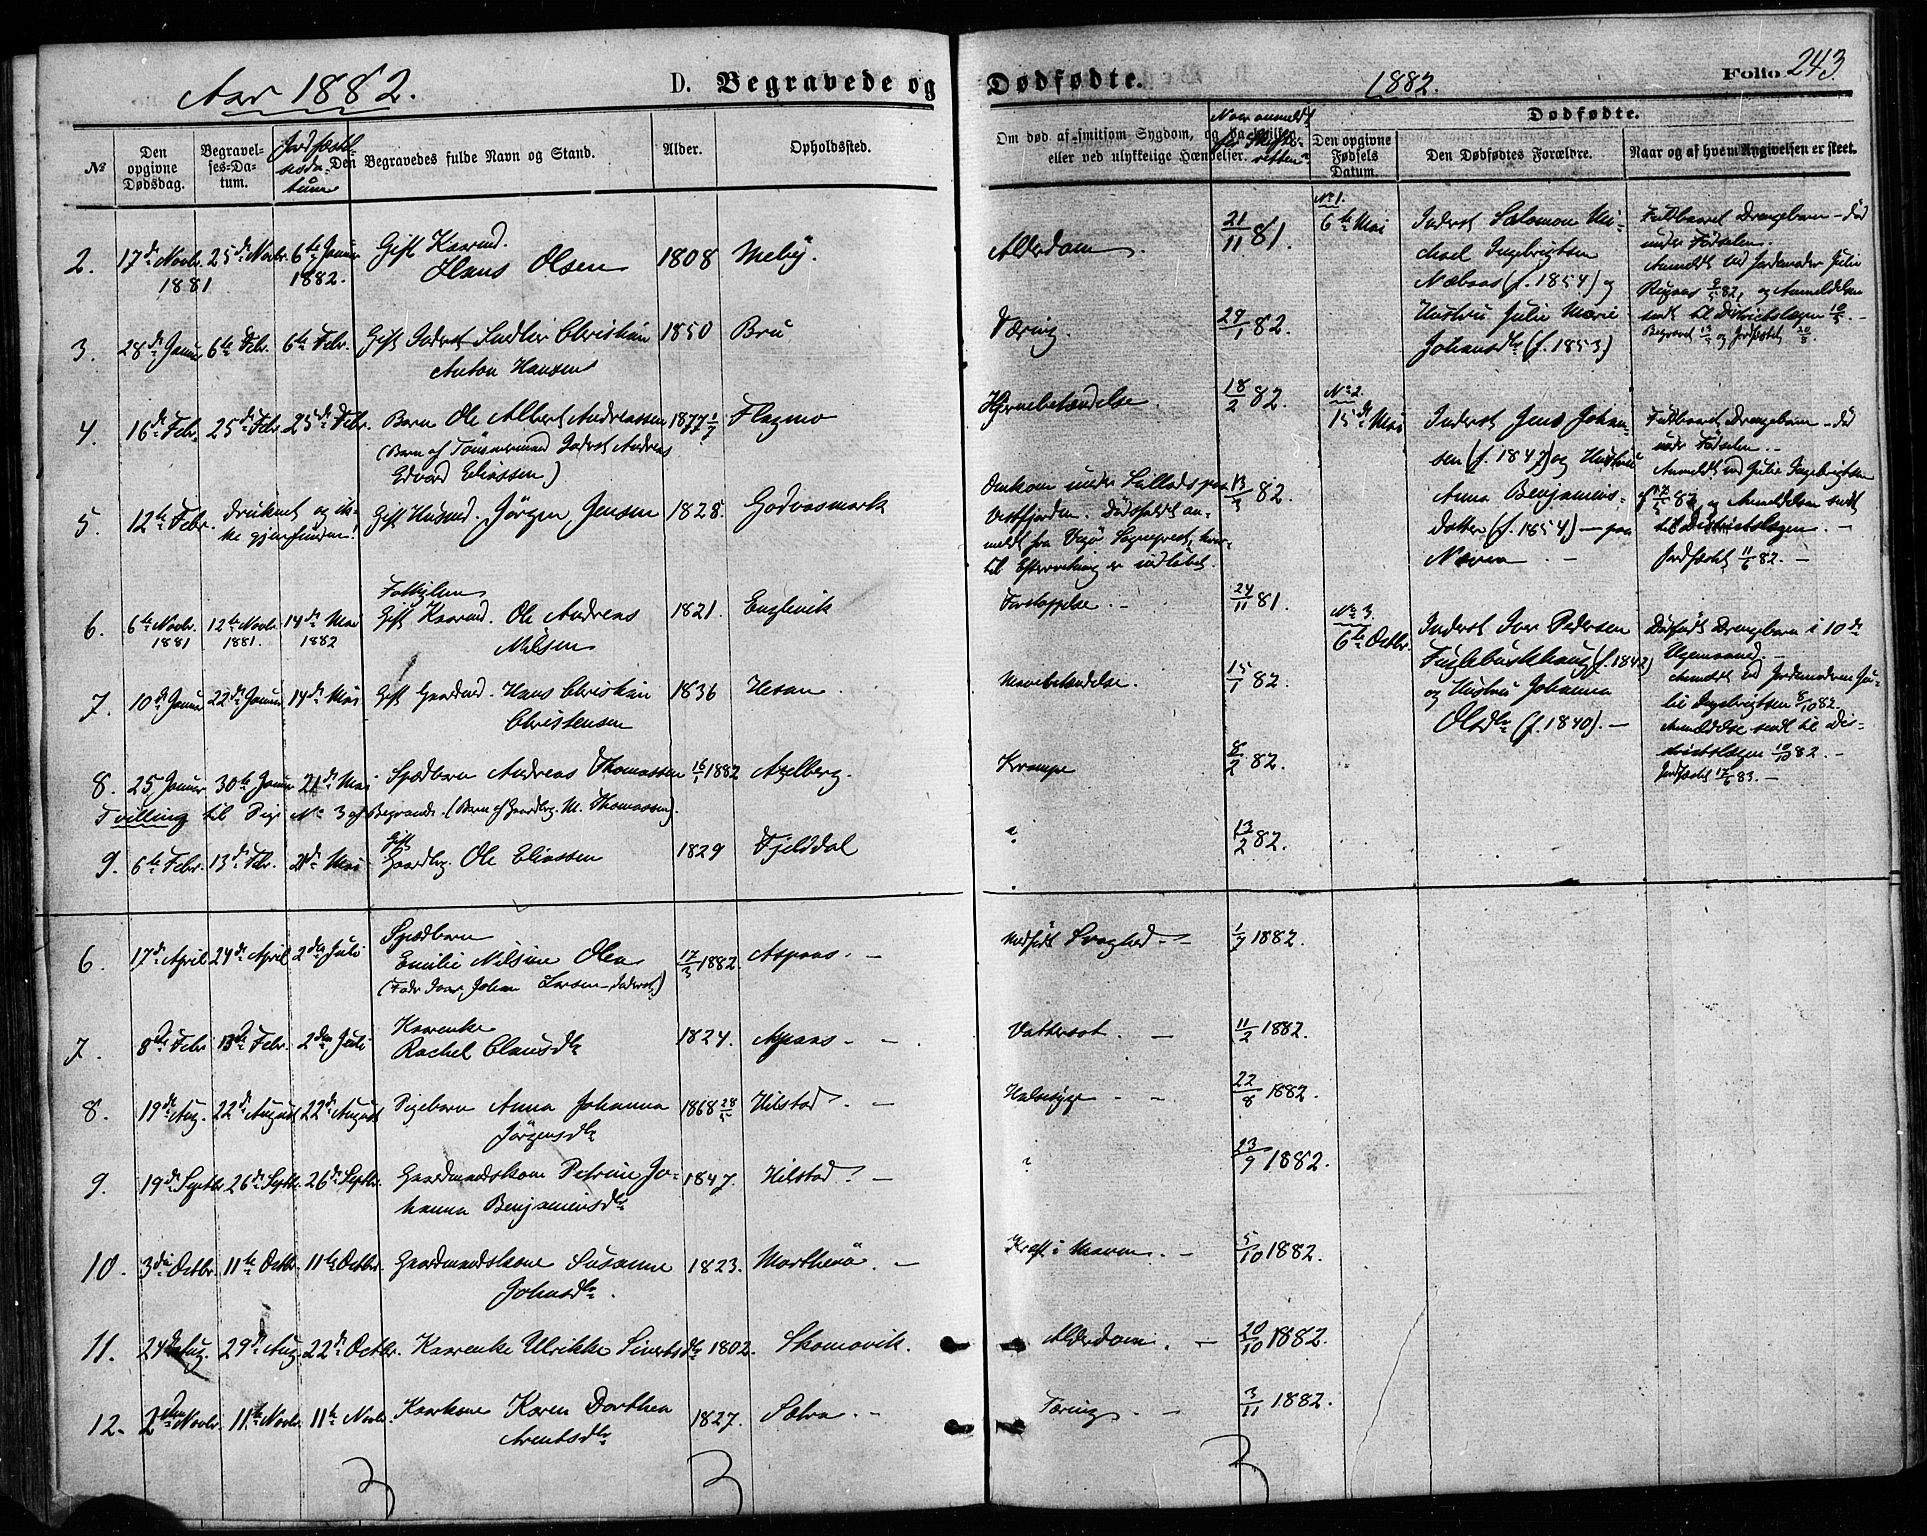 Aar 1882.
D. Begravede og
Dødfødte.
1882.
Folio 243
№
Den opgivne Dødsdag.
Begravelses-Datum.
Jordfæstelsesdatum
Den Begravedes fulde Navn og Stand.
Alder.
Opholdssted.
Om død af smitsom Sygdom, og
eller ved ulykkelige Hændelser.
Naar anmeldt for Skifteretten
Dødfødte.
Den opgivne Fødsels Datum.
Den Dødfødtes Forældre.
Naar og af hvem Angivelsen er skeet.
2. 17de Novbr. 1881 25de Novbr. 6te Januar 1882. Gift Kaarmd. Hans Olsen 1808 Meby. Alderdom. 21/11 81.
3. 28de Januar 6te Febr. 6te Febr. Gift Inderst Christian
Anton Hansen 1850 Bru Tæring. 1 82.
4. 16de Febr. 25de Febr. 25de Febr. Barn Ole Albert Andreassen 1877 1/7 Flagmo Hjernebetændelse. 18/2 82.
(Barn af Tømmermand Inderst Andreas
Edvard Eliassen)
5. 12te Febr. druknet og ikke gjenfunden! Gift Husmd. Jörgen Jensen 1828. Godvasmark Omkom under
Vestfjorden. Dödsfaldet anmeldt fra Sogneprest, hvortil er indløbet. 13/3 82.
6. 6te Novbr. 1881 12te Novbr. 1881. 14de Mai 1882 Gift Kaarmd. Ole Andreas
Nilsen 1821. Englevik Forstoppelse. 24/11 81.
7. 10de Januar 22de Januar 14de Mai Gift Gaardmd. Hans Christian
Christensen 1836 Hesan. Mavebetændelse. 15/1 82.
8. 25 Januar 30te Januar 21de Mai Spædbarn Andreas Thomassen 16/1 1882 Axelberg. Krampe 8/2 82.
Tvilling til Pige No 3 af Begravede. (Barn af Gaardbr. M. Thomassen).
9. 6te Febr. 13de Febr. 21de Mai Gift
Gaardbr. Ole Eliassen 1829 Fjelddal ? 13/2 82.
6. 17de April 24de April 2den Juli Spædbarn
Emilie Nilsine Olea 17/3 1882. Aspaas. Medfødt Svaghed. 1/7 1882.
(Fader Johan Larsen Inderst)
7. 8de Febr. 13de Febr. 2den Juli Kaarenke
Rachel Clausdtr 1824. Aspaas. Vattersot. 11/2 1882.
8. 19de Aug. 22de August 22de August Pigebarn Anna Johanna
Jörgensdtr 1868 28/5 Hilstad. Halssyge 22/8 1882.
9. 19de Septbr. 26de Septbr. 26de Septbr. Gaardmandskone Petrine Johanna Benjaminsdtr 1847. Hilstad. ? 23/9 1882.
10. 3die Octbr. 11te Octbr. 11te Octbr. Gaardmandskone Susanne
Johnsdtr. 1823. Kræft i Maven. 5/10 1882.
11. 24de Aug. 29de Aug. 22de Octbr. Kaarenke Ulrikke Sivertsdtr 1802. Skomovik. Alderdom. 20/10 1882.
12. 2den Novbr. 11te Novbr. 11te Novbr. Kaarkone Karen Dorthea
Arentsdtr 1827. Tæring. 3/11 1882.
No 1.
6te Mai
Inderst Salomon Michael Ingebrigtsen
(f. 1854) og
Hustru Julie Marie
Johansdtr (f. 1853)
Fuldbaaret Drengebarn – död
under Födselen.
Anmeldt ved Jordemoder Julie
82, og Anmeldelsen
sendt til Districtslægen
Begravet og Jordfæstet
No 2.
15de Mai
Inderst Jens Johansen (f. 1847) og Hustru
Anna Benjaminsdatter (f. 1854) – paa
Fuldbaaret Drengebarn – död
under Födselen. –
Anmeldt ved Julie Ingebrigtsen
82 og Anmeldelsen sendt
til Districtslægen. –
Jordfæstet 11/6 82. –
No 3.
6te Octbr.
Inderst Iver Pedersen
Fuglebuskhaug (f. 1842)
og Hustru Johanna
Olsdtr (f. 1840). –
Dödfödt Drengebarn i 10de
Anmeldt ved Jordemoderen Julie Ingebrigtsen 8/10 82.
Anmeldelse sendt til Districtslægen 10/10 82. –
Jordfæstet 17/6 83. –
3
3
3